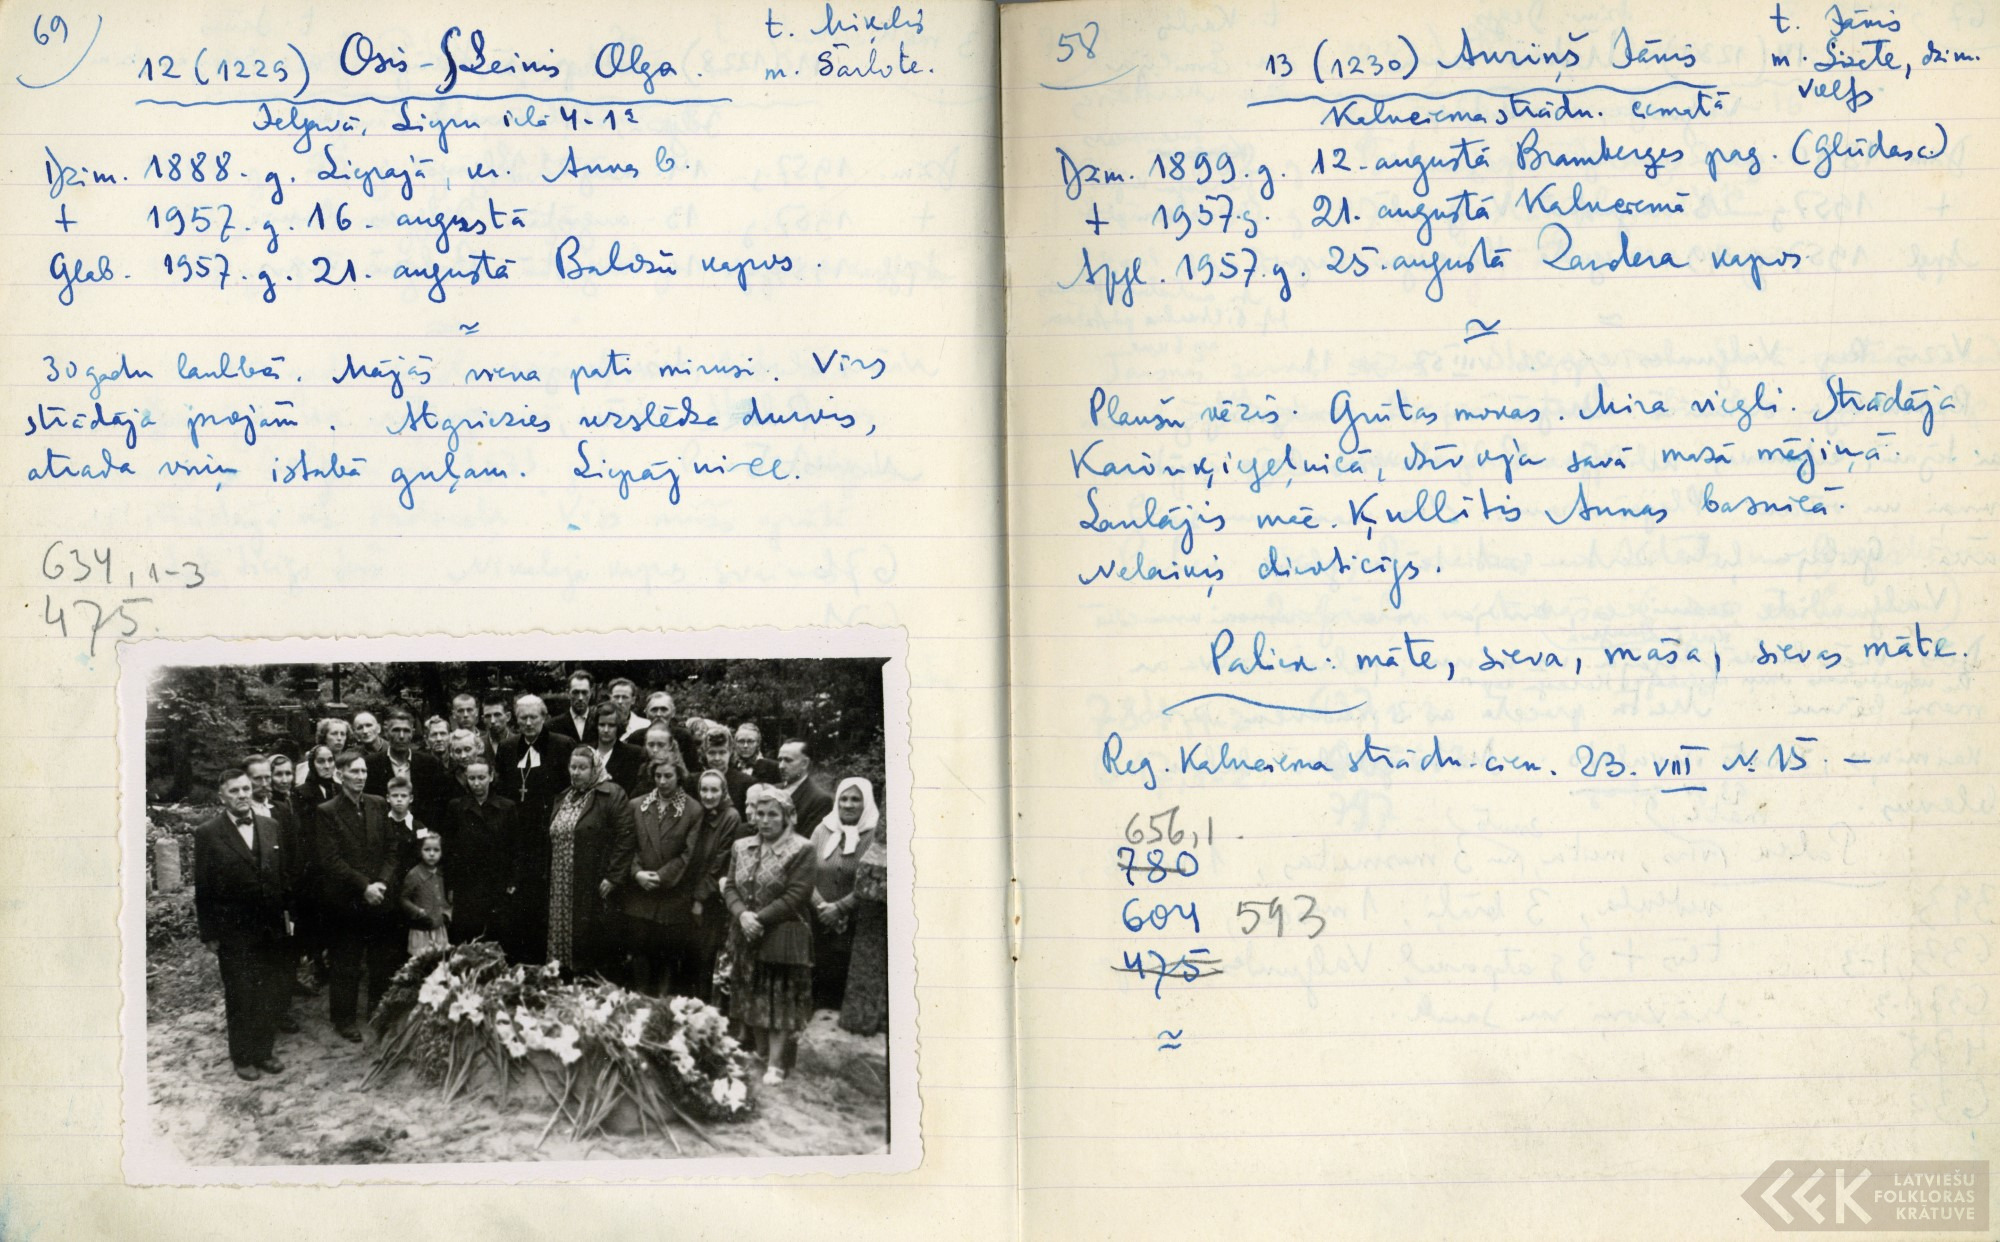 69
12 (1229) Osis-Šleinis Olga.
t. Miķelis
m. Šarlote.
Jelgavā, Liepu ielā 4-1ª
Dzim. 1888. g. Liepājā, kr. Annas b.
+ 1957. g. 16. augustā
Glab. 1957. g. 21. augustā Baložu kapos.
≃
30 gadu laulībā. Mājās viena pati mirusi. Vīrs
strādāja projām. Atgriezies uzslēdza durvis,
atrada viņu istabā guļam. Liepājniece.
634, 1-3
475.
58
13 (1230) Auriņš Jānis
t. Jānis
m. Lizete, dzim.
Kalnciema strādn. ciematā
Dzim. 1899. g. 12. augustā Bramberģes pag. (Glūdasc)
+ 1957. g. 21. augustā Kalnciemā
Apgl. 1957. g. 25. augustā Raudera kapos.
≃
Plaušu vēzis. Grūtas mokas. Mira viegli. Strādāja
ķieģeļnīcā, dzīvoja savā mazā mājiņā.
Laulājis māc. Ķullītis Annas baznīcā.
Nelaiķis dievticīgs.
Paliek: māte, sieva, māsa, sievas māte.
Reg. Kalnciema strādn. ciem. 23. VIII № 15. –
656,1.
780
604 593
475
≃
LATVIEŠU
FOLKLORAS
KRĀTUVE